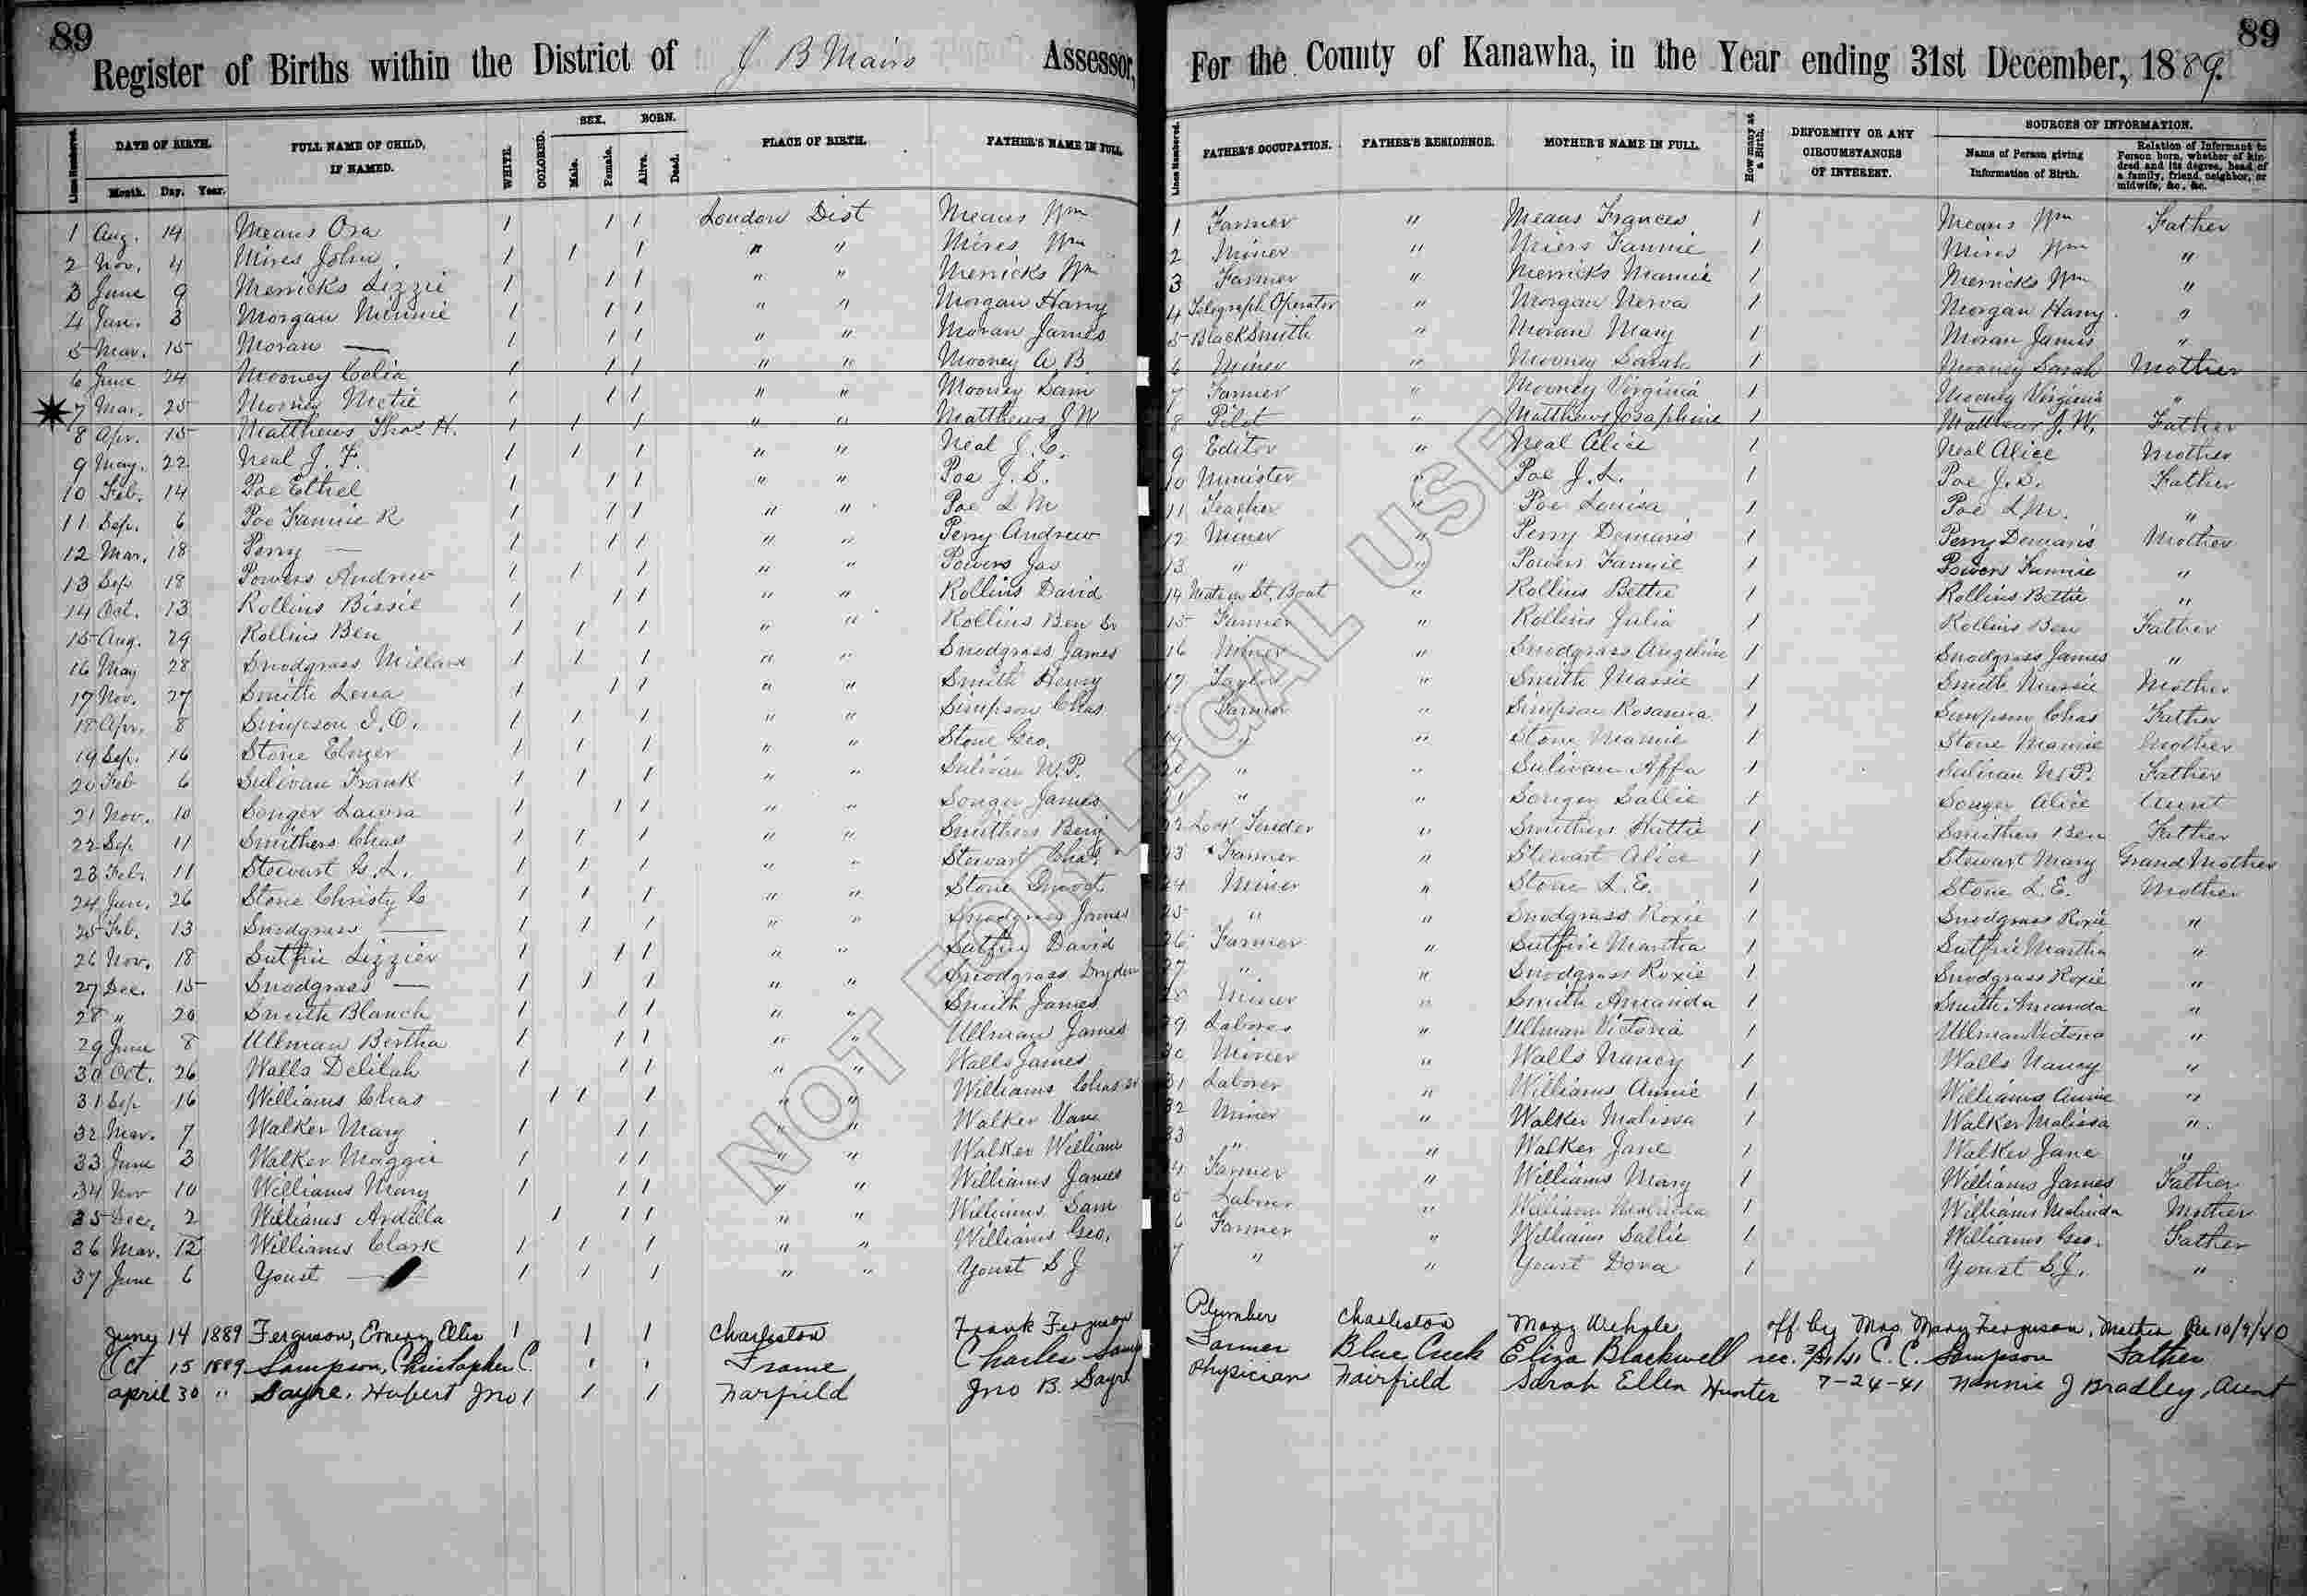 89
Register of Births within the District of J B Mairs Assessor,
For the County of Kanawha, in the Year ending 31st December, 1889.
89
Lines Numbered. DATE OF BIRTH. Month. Day. Year. FULL NAME OF CHILD, IF NAMED. WHITE. COLORED. SEX. Male. Female. BORN. Alive. Dead. PLACE OF BIRTH. FATHER'S NAME IN FULL.
Lines Numbered. FATHER'S OCCUPATION. FATHER'S RESIDENCE. MOTHER'S NAME IN FULL. How many at a Birth. DEFORMITY OR ANY CIRCUMSTANCES OF INTEREST. SOURCES OF INFORMATION. Name of Person giving Information of Birth. Relation of Informant to Person born, whether of kindred and its degree, head of a family, friend, neighbor, or midwife, &c., &c.
1 Aug. 14 Means Ora 1 1 1 London Dist Means Wm 1 Farmer " Means Frances 1 Means Wm Father
2 Nov. 4 Mires John 1 1 1 " " Mires Wm 2 Miner " Miers Fannie 1 Mires Wm "
3 June 9 Merricks Lizzie 1 1 1 " " Merricks Wm 3 Farmer " Merricks Mamie 1 Merricks Wm "
4 Jan. 3 Morgan Minnie 1 1 1 " " Morgan Harry 4 Telegraph Operator " Morgan Nerva 1 Morgan Harry "
5 Mar. 15 Moran — 1 1 1 " " Moran James 5 BlackSmith " Moran Mary 1 Moran James "
6 June 24 Mooney Celia 1 1 1 " " Mooney A B. 6 Miner " Mooney Sarah 1 Mooney Sarah Mother
7 Mar. 25 Mooney Metie 1 1 1 " " Mooney Sam 7 Farmer " Mooney Virginia 1 Mooney Virginia "
8 Apr. 15 Matthews Thos H. 1 1 1 " " Matthews J W 8 Pilot " Matthews Josaphine 1 Matthews J. W. Father
9 May. 22 Neal J. F. 1 1 1 " " Neal J. C. 9 Editor " Neal Alice 1 Neal Alice Mother
10 Feb. 14 Poe Ethel 1 1 1 " " Poe J. S. 10 Minister " Poe J. L. 1 Poe J. S. Father
11 Sep. 6 Poe Fannie R 1 1 1 " " Poe L M 11 Teacher " Poe Louisa 1 Poe L M. "
12 Mar. 18 Perry — 1 1 1 " " Perry Andrew 12 Miner " Perry Demaris 1 Perry Demaris Mother
13 Sep 18 Powers Andrew 1 1 1 " " Powers Jas 13 " " Powers Fannie 1 Powers Fannie "
14 Oct. 13 Rollins Bissie 1 1 1 " " Rollins David 14 St. Boat " Rollins Bettie 1 Rollins Bettie "
15 Aug. 29 Rollins Ben 1 1 1 " " Rollins Ben Sr 15 Farmer " Rollins Julia 1 Rollins Ben Father
16 May 28 Snodgrass Millard 1 1 1 " " Snodgrass James 16 Miner " Snodgrass Angeline 1 Snodgrass James "
17 Nov. 27 Smith Lena 1 1 1 " " Smith Henry 17 Taylor " Smith Massie 1 Smith Massie Mother
18 Apr. 8 Simpson I. O. 1 1 1 " " Simpson Chas Farmer " Simpson Rosanna 1 Simpson Chas Father
19 Sep. 16 Stone Elmer 1 1 1 " " Stone Geo. 19 " " Stone Mamie 1 Stone Mamie Mother
20 Feb 6 Sulivan Frank 1 1 1 " " Sulivan W. P. " " Sulivan Affa 1 Sulivan W P. Father
21 Nov. 10 Songer Laura 1 1 1 " " Songer James " " Songer Sallie 1 Songer Alice Aunt
22 Sep 11 Smithers Chas 1 1 1 " " Smithers Benj 22 Lock Tender " Smithers Hattie 1 Smithers Ben Father
23 Feb. 11 Stewart G. L. 1 1 1 " " Stewart Chas. 23 Farmer " Stewart Alice 1 Stewart Mary Grand Mother
24 Jan. 26 Stone Christy C 1 1 1 " " Stone 24 Miner " Stone L. E. 1 Stone L. E. Mother
25 Feb. 13 Snodgrass — 1 1 1 " " Snodgrass James 25 " " Snodgrass Roxie 1 Snodgrass Roxie "
26 Nov. 18 Sutfin Lizzie 1 1 1 " " Sutfin David 26 Farmer " Sutfin Martha 1 Sutfin Martha "
27 Dec. 15 Snodgrass — 1 1 1 " " Snodgrass Dryden 27 " " Snodgrass Roxie 1 Snodgrass Roxie "
28 " 20 Smith Blanch 1 1 1 " " Smith James 28 Miner " Smith Amanda 1 Smith Amanda "
29 June 8 Ullman Bertha 1 1 1 " " Ullman James 29 Laborer " Ullman Victoria 1 Ullman Victoria "
30 Oct. 26 Walls Delilah 1 1 1 " " Walls James 30 Miner " Walls Nancy 1 Walls Nancy "
31 Sep 16 Williams Chas 1 1 1 " " Williams Chas Sr 31 Laborer " Williams Annie 1 Williams Annie "
32 Mar. 7 Walker Mary 1 1 1 " " Walker Van 32 Miner " Walker Malissa 1 Walker Malissa "
33 June 3 Walker Maggie 1 1 1 " " Walker William 33 " " Walker Jane 1 Walker Jane "
34 Nov 10 Williams Mary 1 1 1 " " Williams James 4 Farmer " Williams Mary 1 Williams James Father
35 Dec. 2 Williams Ardilla 1 1 1 " " Williams Sam 5 Laborer " Williams Malinda 1 Williams Malinda Mother
36 Mar. 12 Williams Clark 1 1 1 " " Williams Geo. 6 Farmer " Williams Sallie 1 Williams Geo. Father
37 June 6 Youst — 1 1 1 " " Youst S J 7 " " Youst Dora 1 Youst S. J. "
June 14 1889 Ferguson, Emery Ellis 1 1 1 Charleston Frank Ferguson Plumber Charleston Mary Wehrle off by Mrs Mary Ferguson, Mother Rec 10/9/40
Oct 15 1889 Sampson, Christopher C. 1 1 Frame Charles Samp Farmer Blue Creek Eliza Blackwell rec. C. C. Sampson Father
April 30 " Sayre, Hubert Jno 1 1 1 Fairfield Jno B. Sayre Physician Fairfield Sarah Ellen Hunter 7-24-41 Nannie J Bradley, Aunt
NOT FOR LEGAL USE